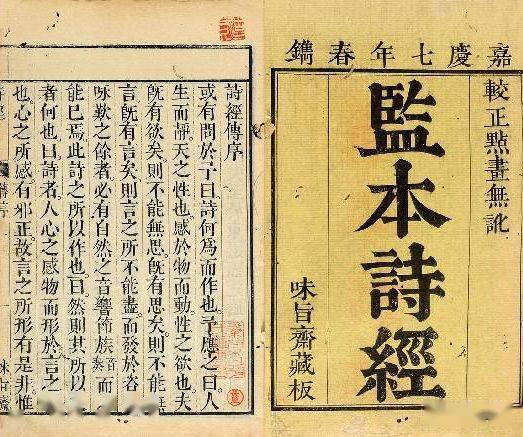 嘉慶七年春鐫
較正點畫無訛
監本詩經
味旨齋藏板
詩經傳序
或有問於予曰詩何為而作也予應之曰人
生而靜天之性也感於物而動性之欲也夫
旣有欲矣則不能無思旣有思矣則不能無
言旣有言矣則言之所不能盡而發於咨
咏歎之餘者必有自然之音響節族音奏而
能已焉此詩之所以作也曰然則其所以
者何也曰詩者人心之感物而形於言之
也心之所感有邪正故言之所形有是非惟